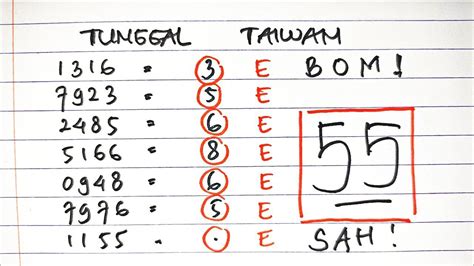 TUNGGAL TAIWAN
1316 = 3 E BOM!
7923 = 5 E
2485 = 6 E
5166 = 8 E 55
0948 = 6 E
7976 = 5 E
1155 = . E SAH!